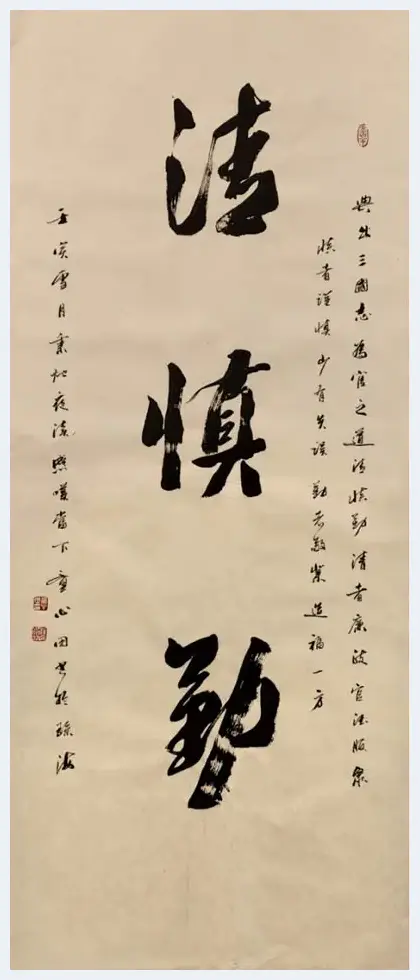 典出三國志為官之道清慎勤清者廉政官服眾
慎者謹慎少有失誤勤者敬業造福一方
清慎勤
雪月夜讀嘆當下童心書於珠海